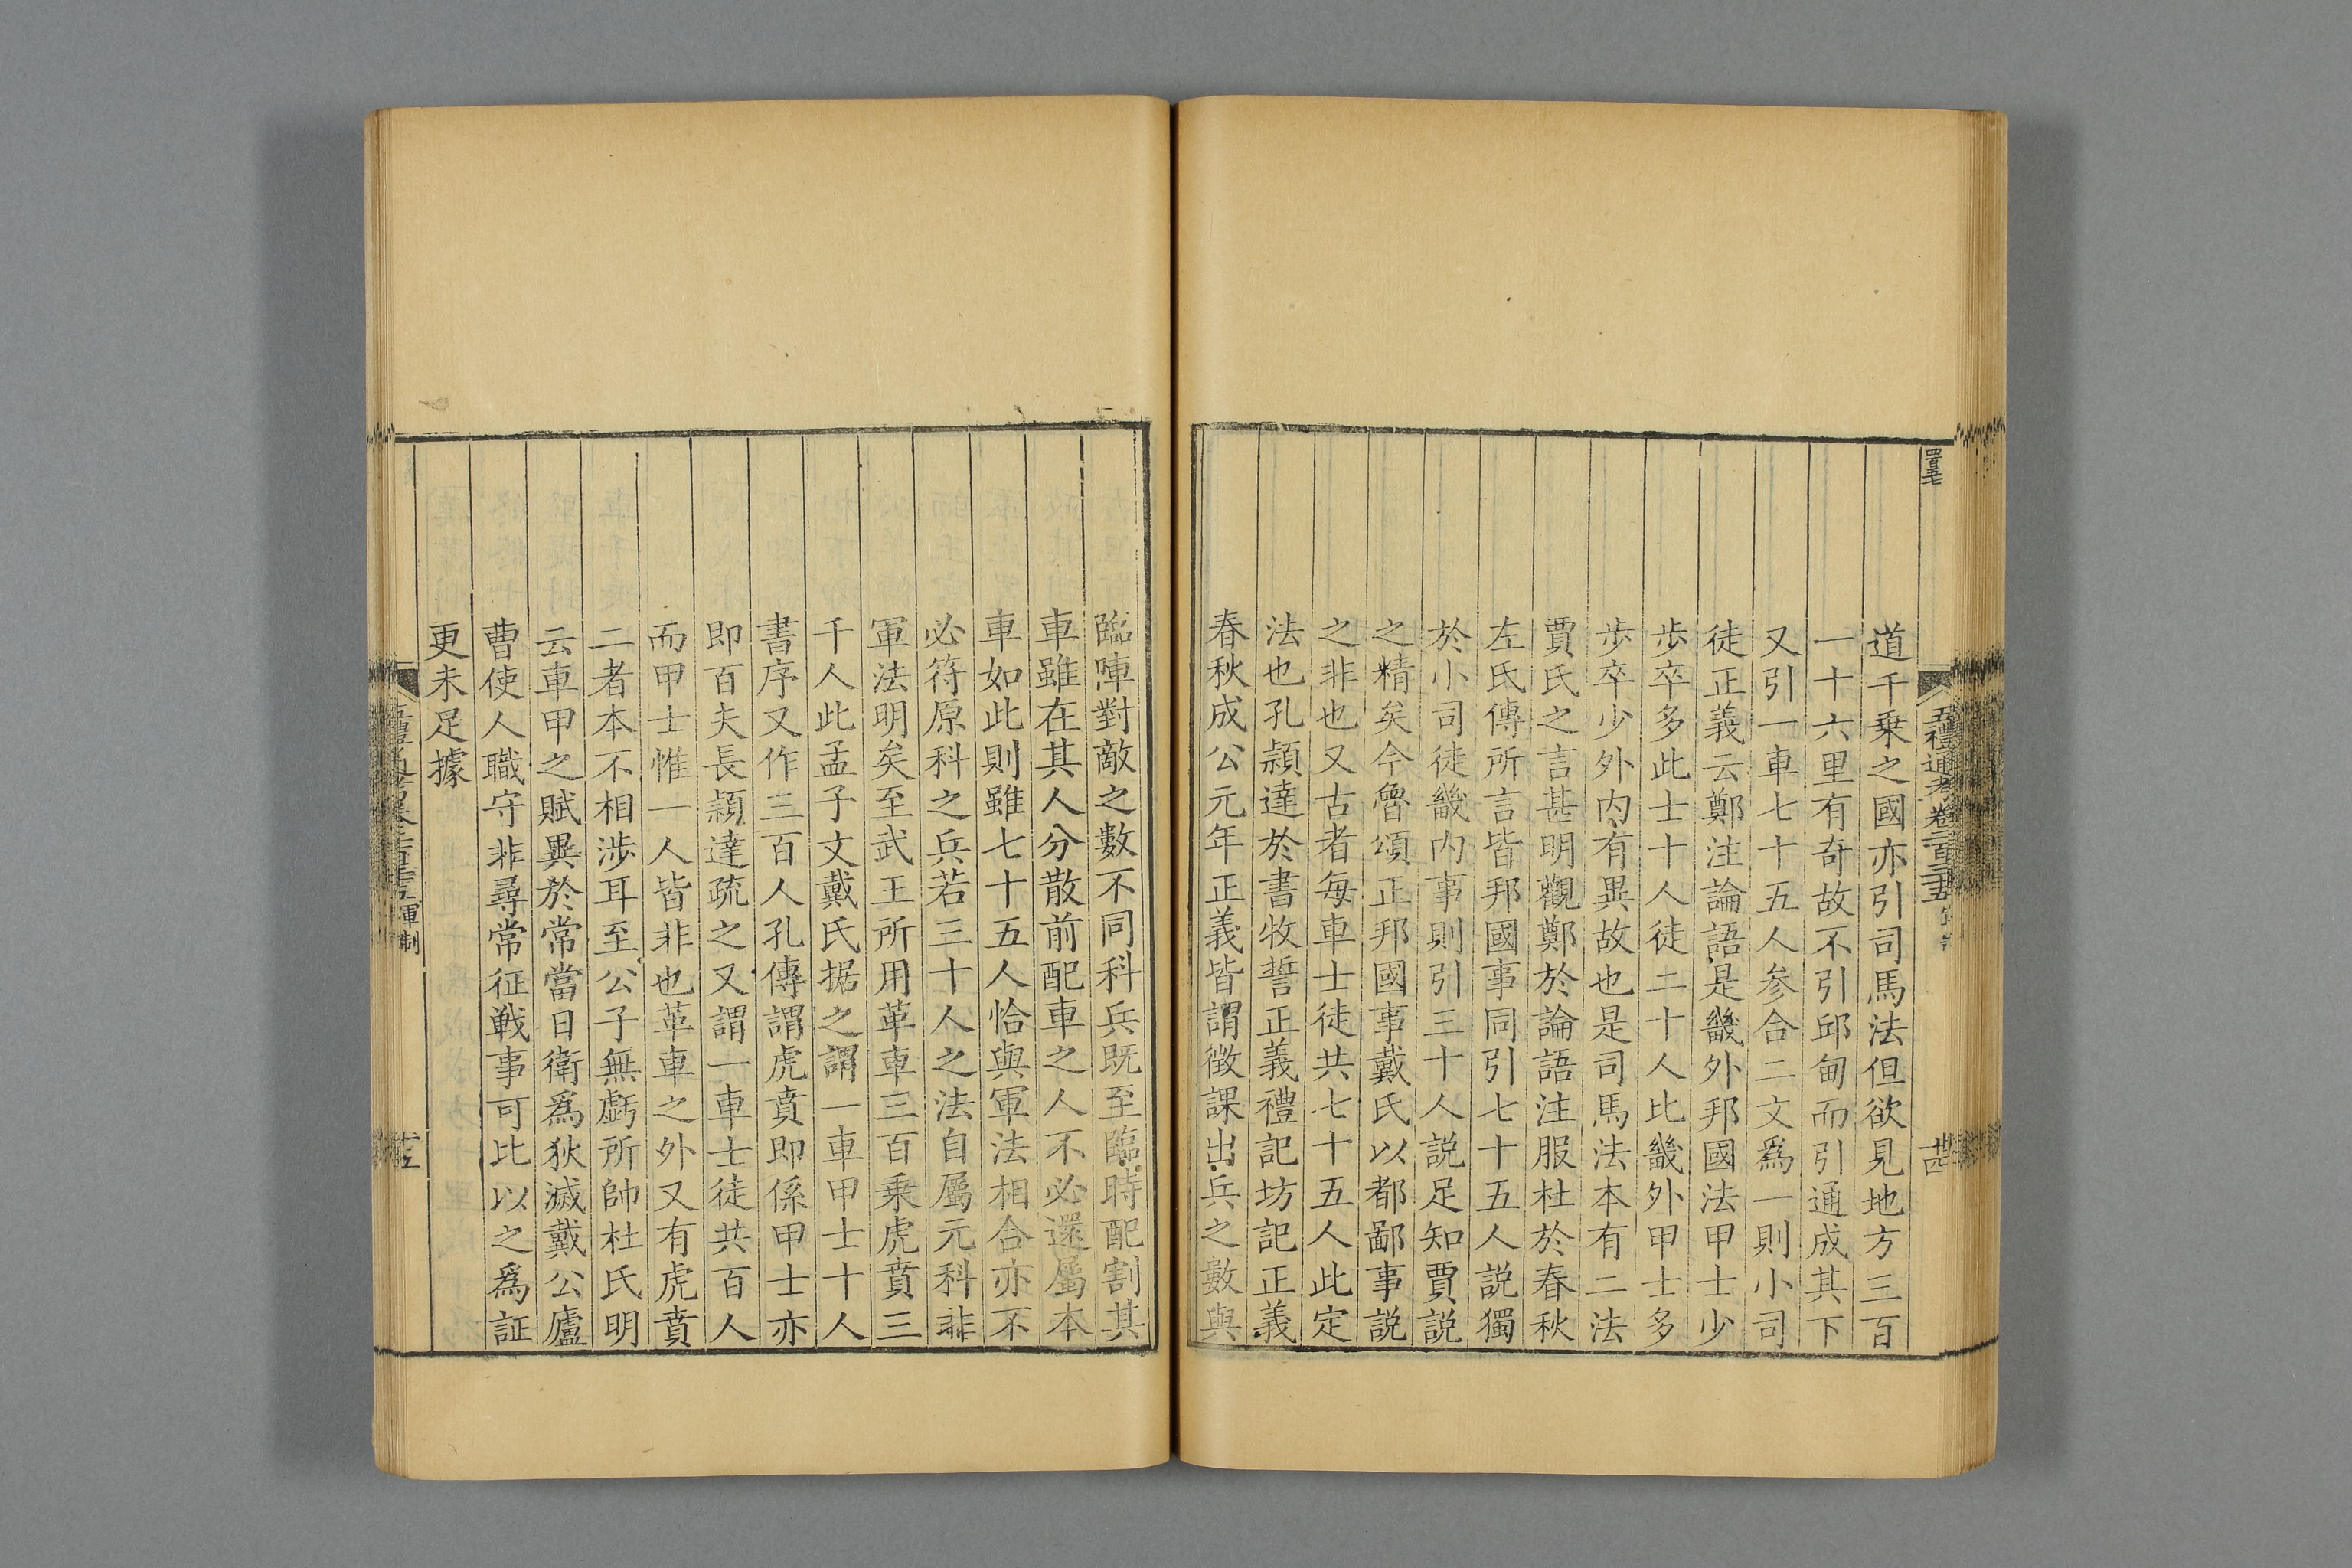 道千乗之國亦引司馬法但欲見地方三百
一十六里有奇故不引邱甸而引通成其下
又引一車七十五人参合二文爲一則小司
徒正義云鄭注論語是畿外邦國法甲士少
歩卒多此士十人徒二十人比畿外甲士多
歩卒少外内有異故也是司馬法本有二法
賈氏之言甚明觀鄭於論語注服杜於春秋
左氏傳所言皆邦國事同引七十五人説獨
於小司徒畿内事則引三十人説足知賈説
之精矣今魯頌正邦國事戴氏以都鄙事説
之非也又古者每車士徒共七十五人此定
法也孔頴達於書牧誓正義禮記坊記正義
春秋成公元年正義皆謂徴課出兵之數與
臨陣對敵之數不同科兵既至臨時配割其
車雖在其人分散前配車之人不必還屬本
車如此則雖七十五人恰與軍法相合亦不
必符原科之兵若三十人之法自屬元科非
軍法明矣至武王所用革車三百乗虎賁三
千人此孟子文戴氏据之謂一車甲士十人
書序又作三百人孔傳謂虎賁即係甲士亦
即百夫長頴達疏之又謂一車士徒共百人
而甲士惟一人皆非也革車之外又有虎賁
二者本不相涉耳至公子無虧所帥杜氏明
云車甲之賦異於常當日衛爲狄滅戴公廬
曹使人職守非尋常征戦事可比以之爲証
更未足據
五禮通考卷二百三十五
軍制